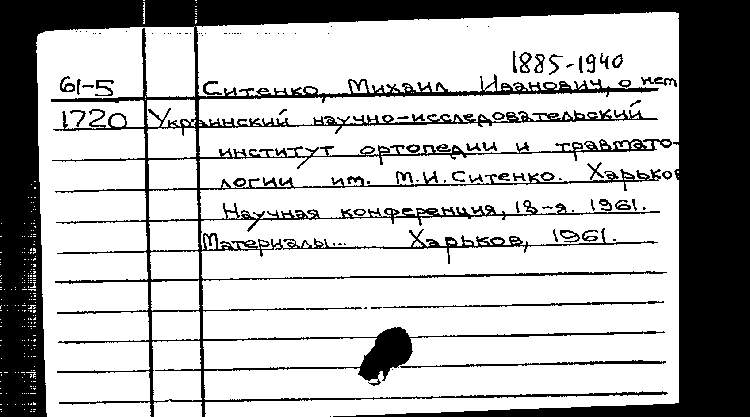 1885-1940
61-5 Ситенко, Михаил Иванович, о нем
1720 Украинский научно-исследовательский
институт ортопедии и травмато-
логии им. М.И.Ситенко. Харьков
Научная конференция, 18-я. 1961.
Материалы... Харьков, 1961.